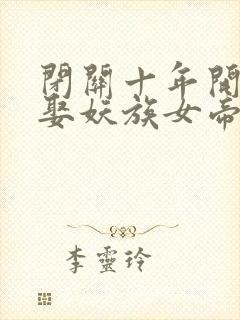 閉關十年開
娶妖族女帝
李靈玲